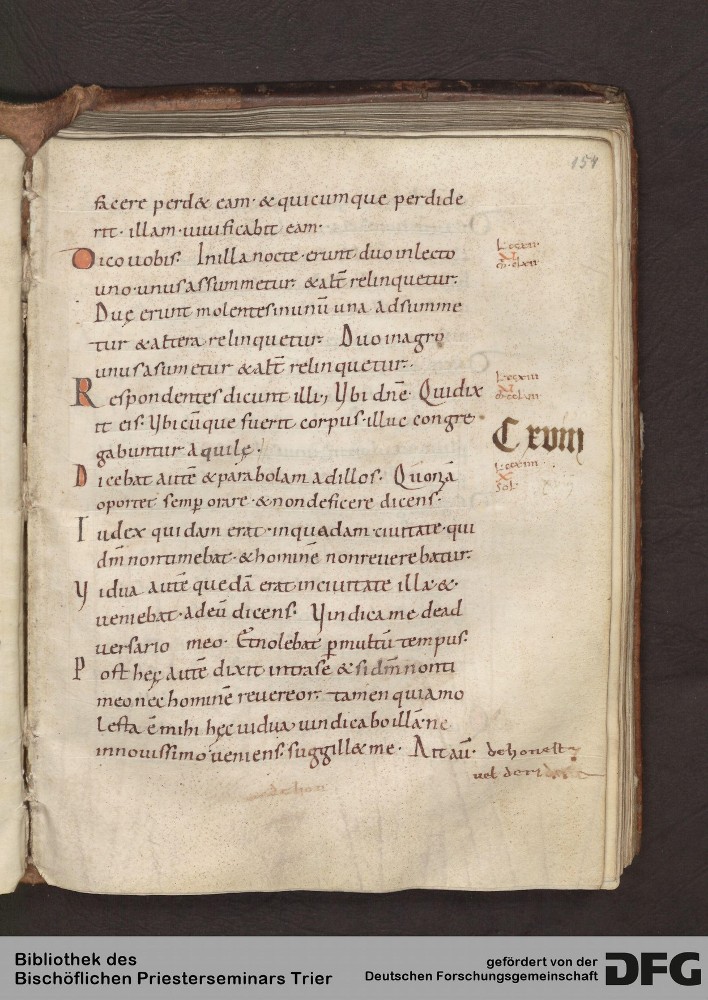 154
facere perd& eam· & quicumque perdide
rit· illam· uiuificabit eam·
Dico uobis· In illa nocte· erunt duo in lecto
uno· unus assummetur· & alt̄ relinquetur·
Duę erunt molentes in unū una adsumme
tur & altera relinquetur· Duo in agro
unus asumetur & alt̄ relinquetur·
Respondentes dicunt illi, Ybi dn̄e· Qui dix
it eis· Ybicūque fuerit corpus· illuc congre
gabuntur aquilę·
CXVIII
Dicebat autē & parabolam ad illos· Quoniā
oportet semp orare· & non deficere dicens·
Iudex quidam erat· in quadam· ciuitate· qui
dm̄ non timebat· & hominē non reuerebatur·
Yidua autē quedā erat in ciuitate illa· &·
ueniebat· ad eū dicens· Yindica me de ad
uersario meo· Et nolebat p multū tempus·
Post hęc autē dixit intra se & si dm̄ non ti
meo nec hominē reuereor· tamen quia mo
lesta ē mihi hęc uidua uindicabo illā· ne
in nouissimo ueniens· suggill& me· Ait aū·
dehonest
uel derid
dehon
Bibliothek des
Bischöflichen Priesterseminars Trier
gefördert von der
Deutschen Forschungsgemeinschaft
DFG